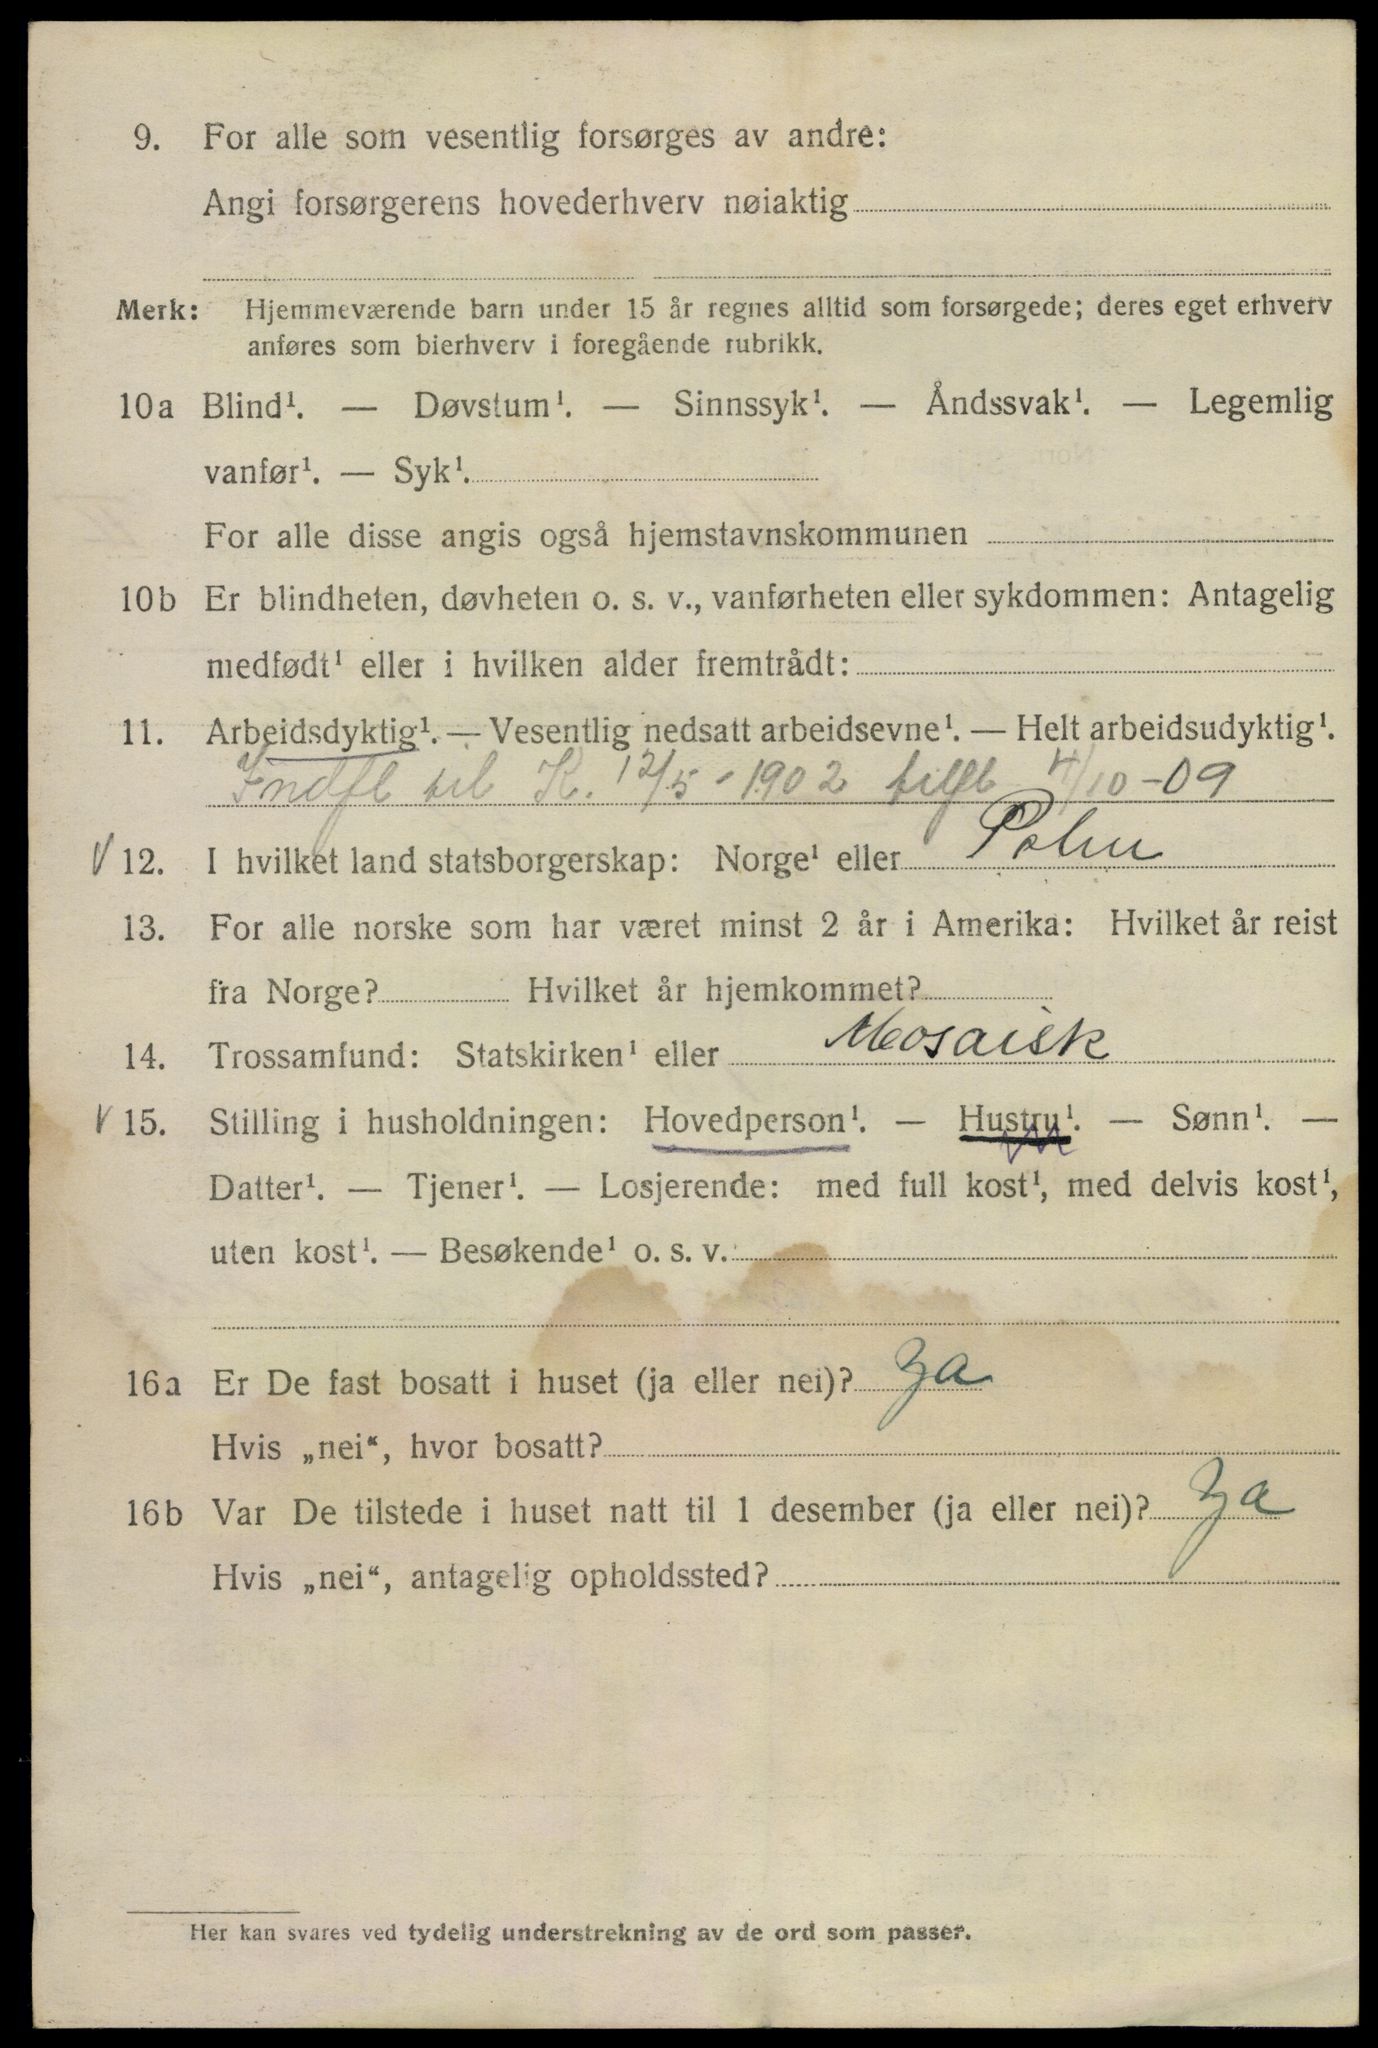 9. For alle som vesentlig forsørges av andre:
Angi forsørgerens hovederhverv nøiaktig
Merk: Hjemmeværende barn under 15 år regnes alltid som forsørgede; deres eget erhverv
anføres som bierhverv i foregående rubrikk.
10a Blind¹. — Døvstum¹. — Sinnssyk¹. — Åndssvak¹. — Legemlig
vanfør¹. — Syk¹.
For alle disse angis også hjemstavnskommunen
10b Er blindheten, døvheten o. s. v., vanførheten eller sykdommen: Antagelig
medfødt¹ eller i hvilken alder fremtrådt:
11. Arbeidsdyktig¹. — Vesentlig nedsatt arbeidsevne¹. — Helt arbeidsudyktig¹.
Indfl til K. 12/5 - 1902 tilfl 4/10 -09
12. I hvilket land statsborgerskap: Norge¹ eller Polen
13. For alle norske som har været minst 2 år i Amerika: Hvilket år reist
fra Norge? Hvilket år hjemkommet?
14. Trossamfund: Statskirken¹ eller Mosaisk
15. Stilling i husholdningen: Hovedperson¹. — Hustru¹. — Sønn¹. —
Datter¹. — Tjener¹. — Losjerende: med full kost¹, med delvis kost¹,
uten kost¹. — Besøkende¹ o. s. v.
16a Er De fast bosatt i huset (ja eller nei)? Ja
Hvis „nei“, hvor bosatt?
16b Var De tilstede i huset natt til 1 desember (ja eller nei)? Ja
Hvis „nei“, antagelig opholdssted?
Her kan svares ved tydelig understrekning av de ord som passer.